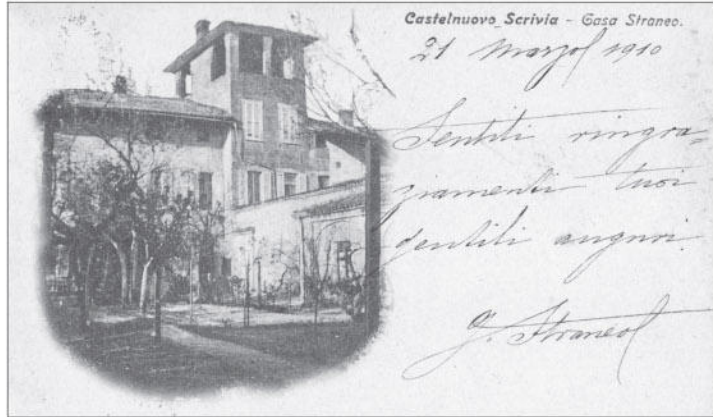 Castelnuovo Scrivia - Casa Straneo.
21 Marzo 1910
Sentiti ringra-
ziamenti tuoi
gentili auguri.
G. Straneo